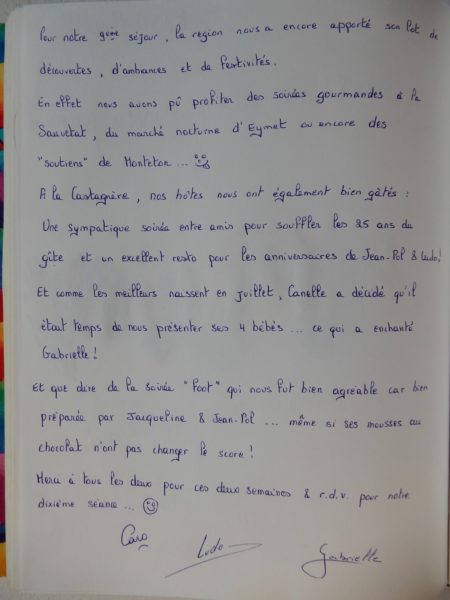 Pour notre 9ème séjour, la région nous a encore apporté son lot de
découvertes, d'ambiances et de festivités.
En effet nous avons pû profiter des soirées gourmandes à la
Sauvetat, du marché nocturne d'Eymet ou encore des
"soutiens" de Monteton ...
A la Castagnère, nos hôtes nous ont également bien gâtés :
Une sympatique soirée entre amis pour souffler les 25 ans du
gîte et un excellent resto pour les anniversaires de Jean-Pol & Ludo!
Et comme les meilleurs naissent en juillet, Canelle a décidé qu'il
était temps de nous présenter ses 4 bébés ... ce qui a enchanté
Gabrielle !
Et que dire de la soirée "foot" qui nous fut bien agréable car bien
préparée par Jacqueline & Jean-Pol ... même si ses mousses au
chocolat n'ont pas changer le score !
Merci à tous les deux pour ces deux semaines & r.d.v. pour notre
dixième séance ...
Caro
Ludo
Gabrielle